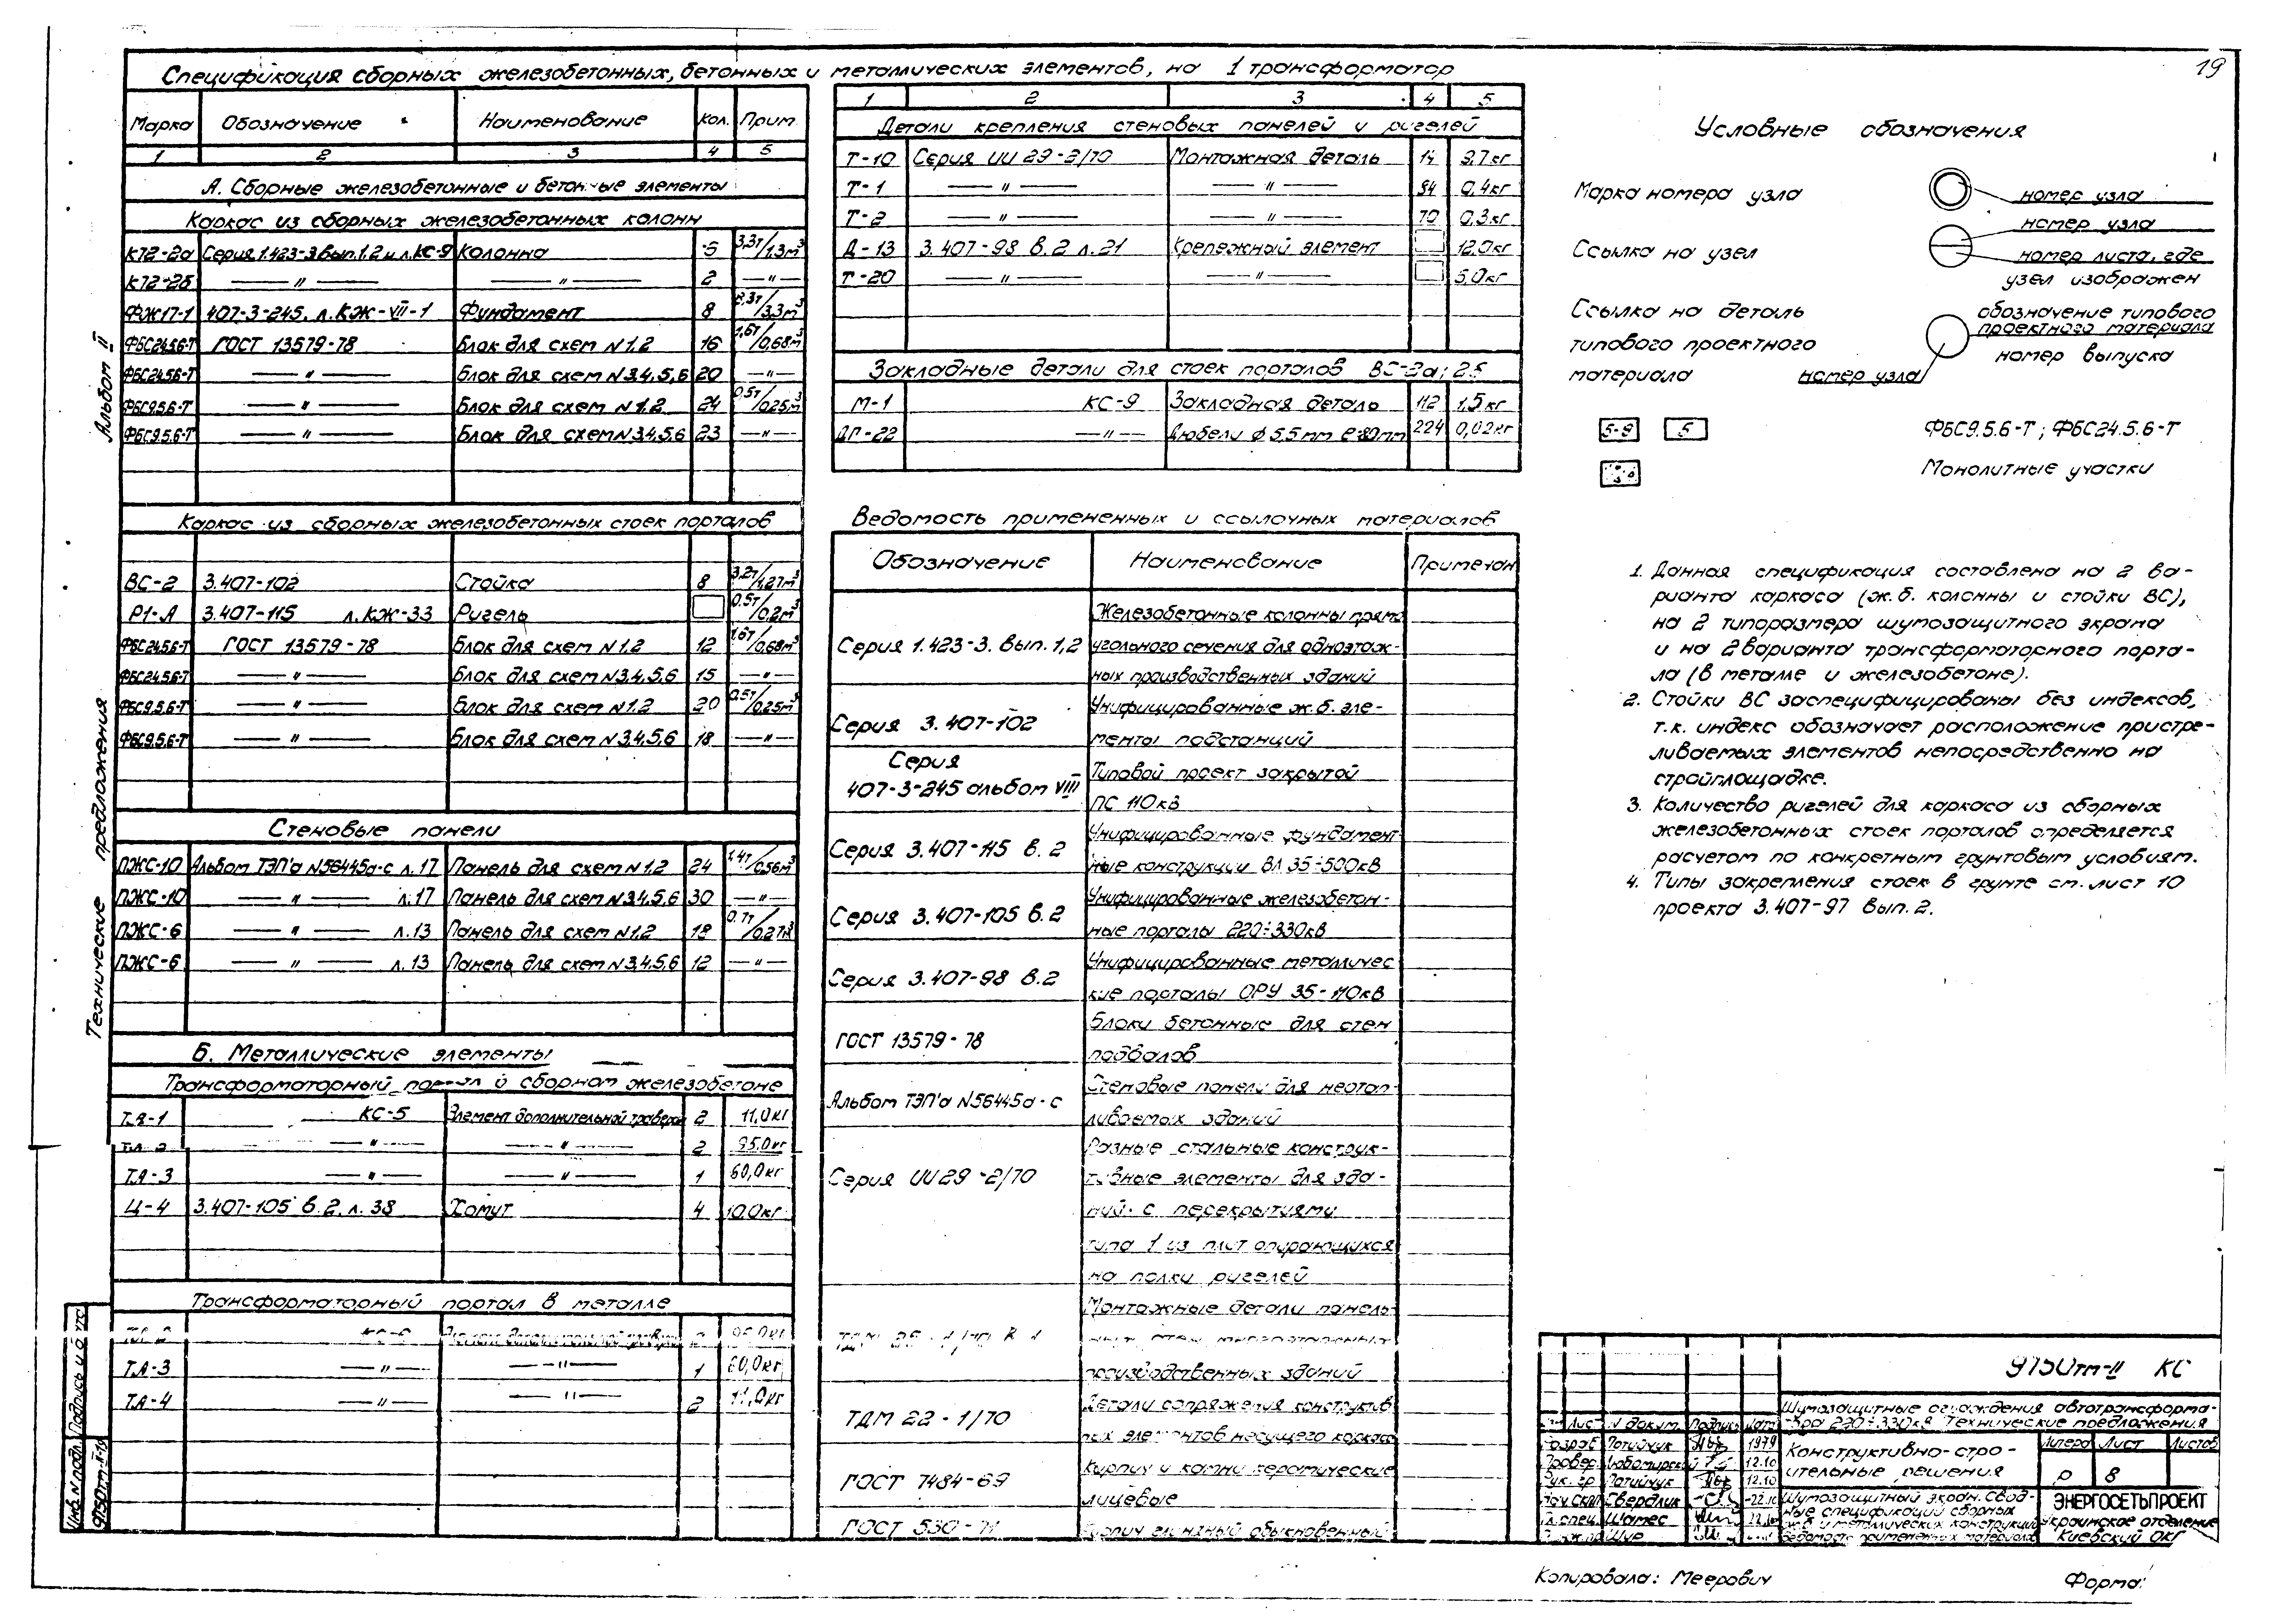 19
Спецификация сборных железобетонных, бетонных и металлических элементов, на 1 трансформатор
Марка Обозначение Наименование Кол. Прим.
1 2 3 4 5
А. Сборные железобетонные и бетонные элементы
Каркас из сборных железобетонных колонн
К72-2а Серия 1.423-3 вып.1,2 и л.КС-9 Колонна 6 3,3т/1,3м³
К72-2б —〃— —〃— 2 —〃—
ФЖ17-1 407-3-245. л.КЖ-VII-1 Фундамент 8 /3,3м³
ФБС24.5.6-Т ГОСТ 13579-78 Блок для схем N1,2 16 1,6т/0,68м³
ФБС24.5.6-Т —〃— Блок для схем N3,4,5,6 20 —〃—
ФБС9.5.6-Т —〃— Блок для схем N1,2 24 0,5т/0,25м³
ФБС9.5.6-Т —〃— Блок для схем N3,4,5,6 23 —〃—
Каркас из сборных железобетонных стоек порталов
ВС-2 3.407-102 Стойка 8 3,2т/1,27м³
Р1-А 3.407-115 л.КЖ-33 Ригель 0.5т/0,2м³
ФБС24.5.6-Т ГОСТ 13579-78 Блок для схем N1,2 12 1,6т/0,68м³
ФБС24.5.6-Т —〃— Блок для схем N3,4,5,6 15 —〃—
ФБС9.5.6-Т —〃— Блок для схем N1,2 20 0,5т/0,25м³
ФБС9.5.6-Т —〃— Блок для схем N3,4,5,6 18 —〃—
Стеновые панели
ПЖС-10 Альбом ТЭП'а N56445а-с л.17 Панель для схем N1,2 24 1,4т/0,56м³
ПЖС-10 —〃— л.17 Панель для схем N3,4,5,6 30 —〃—
ПЖС-6 —〃— л.13 Панель для схем N1,2 18 0,7т/0,27м³
ПЖС-6 —〃— л.13 Панель для схем N3,4,5,6 12 —〃—
Б. Металлические элементы
Трансформаторный портал в сборном железобетоне
ТА-1 КС-5 Элемент дополнительной траверсы 2 11,0кг
—〃— —〃— 2 95.0кг
ТА-3 —〃— —〃— 1 60,0кг
Ц-4 3.407-105 в.2. л.38 Хомут 4 10.0кг
Трансформаторный портал в металле
ТА-3 —〃— —〃— 1 60,0кг
ТА-4 —〃— —〃— 2 11,0кг
1 2 3 4 5
Детали крепления стеновых панелей и ригелей
Т-10 Серия ИИ 29-2/70 Монтажная деталь 14 9,7кг
Т-1 —〃— —〃— 94 0,4кг
Т-2 —〃— —〃— 70 0,3кг
Д-13 3.407-98 в.2 л.21 Крепежный элемент 12.0кг
Т-20 —〃— —〃— 5,0кг
Закладные детали для стоек порталов ВС-2а; 2б
М-1 КС-9 Закладная деталь 112 1,5кг
ДГ-22 —〃— Дюбели ф5,5mm ℓ=80mm 224 0,02кг
Ведомость примененных и ссылочных материалов
Обозначение Наименование Примечан
Серия 1.423-3. вып. 1,2 Железобетонные колонны прямо
угольного сечения для одноэтаж-
ных производственных зданий
Серия 3.407-102 Унифицированные ж.б. эле-
менты подстанций
Серия
407-3-245 альбом VIII Типовой проект закрытой
ПС 110кВ
Серия 3.407-115 в. 2 Унифицированные фундамент-
ные конструкции ВЛ 35÷500кВ
Серия 3.407-105 в.2 Унифицированные железобетон-
ные порталы 220÷330кВ
Серия 3.407-98 в.2 Унифицированные металличес
кие порталы ОРУ 35-110кВ
ГОСТ 13579-78 Блоки бетонные для стен
подвалов
Альбом ТЭП'а N56445а-с Стеновые панели для неотап-
ливаемых зданий
Серия ИИ29-2/70 Разные стальные конструк-
тивные элементы для зда-
ний с перекрытиями
типа 1 из плит опирающихся
на полки ригелей
Монтажные детали панель-
производственных зданий
ТДМ 22-1/70 Детали сопряжения конструктив
ных элементов несущего каркаса
ГОСТ 7484-69 Кирпич и камни керамические
лицевые
ГОСТ 530-71 Кирпич глиняный обыкновенный
Условные обозначения
Марка номера узла номер узла
Ссылка на узел номер узла
номер листа, где
узел изображен
Ссылка на деталь
типового проектного
материала
обозначение типового
проектного материала
номер выпуска
номер узла
5-9 5 ФБС9.5.6-Т; ФБС24.5.6-Т
Монолитные участки
1. Данная спецификация составлена на 2 ва-
рианта каркаса (ж.б. колонны и стойки ВС),
на 2 типоразмера шумозащитного экрана
и на 2 варианта трансформаторного порта-
ла (в металле и железобетоне).
2. Стойки ВС заспецифицированы без индексов,
т.к. индекс обозначает расположение пристре-
ливаемых элементов непосредственно на
стройплощадке.
3. Количество ригелей для каркаса из сборных
железобетонных стоек порталов определяется
расчетом по конкретным грунтовым условиям.
4. Типы закрепления стоек в грунте см. лист 10
проекта 3.407-97 вып. 2.
Альбом II
Технические предложения
Инв. N подл. Подпись и дата
9750тм-II-19
9750тм-II КС
Шумозащитные ограждения автотрансформа-
тора 220÷330кВ. Технические предложения
Лист N докум. Подпись Дата
Разраб. 1979
Провер. 12.10
Рук. гр. 12.10
Нач СКПП Свердлик
Гл. спец. Шамес
Шур
Конструктивно-стро-
ительные решения
Литера Лист Листов
Р 8
Шумозащитный экран. Свод-
ные спецификации сборных
ж.б. и металлических конструкций
Ведомость примененных материалов
ЭНЕРГОСЕТЬПРОЕКТ
Украинское отделение
Киевский ОКП
Копировала: Меерович Форма: